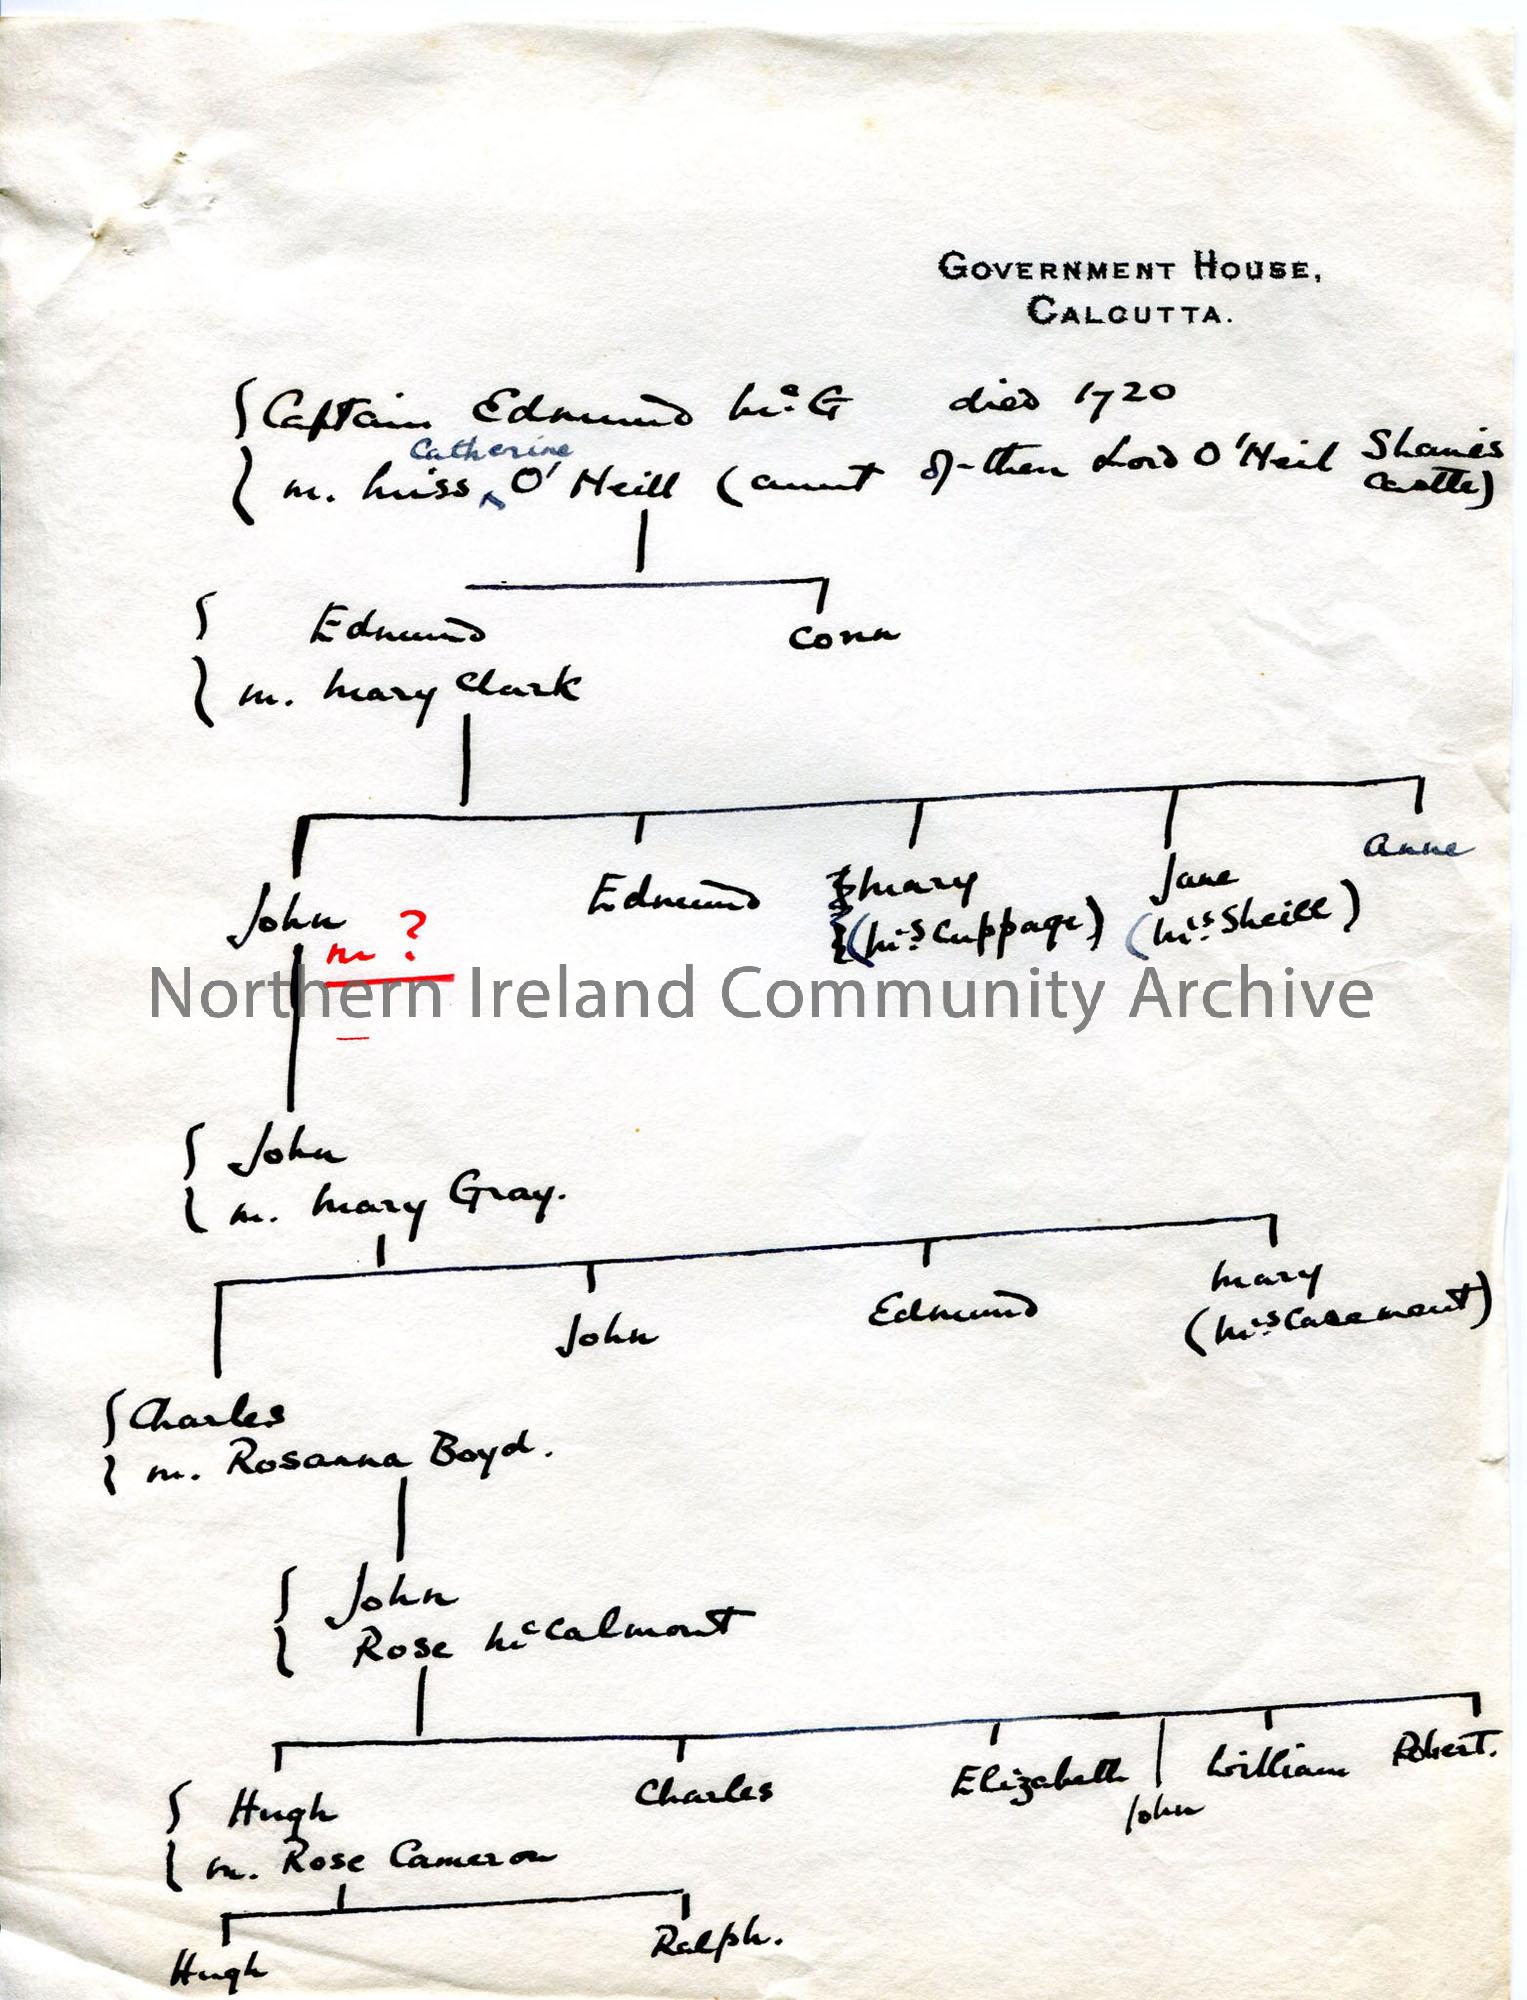 GOVERNMENT HOUSE,
CALCUTTA.
Captain Edmund McG died 1720
Catherine
m. Miss ^ O'Neill (aunt of then Lord O'Neil Shanes
Castle)
Edmund Conn
m. Mary Clark
John Edmund Mary Jane Anne
(Mrs Cuppage) (Mrs Sheill)
m ?
Northern Ireland Community Archive
John
m. Mary Gray.
John Edmund Mary
(Mrs Casement)
Charles
m. Rosanna Boyd.
John
Rose McCalmont
Hugh Charles Elizabeth John William Robert.
m. Rose Cameron
Hugh Ralph.